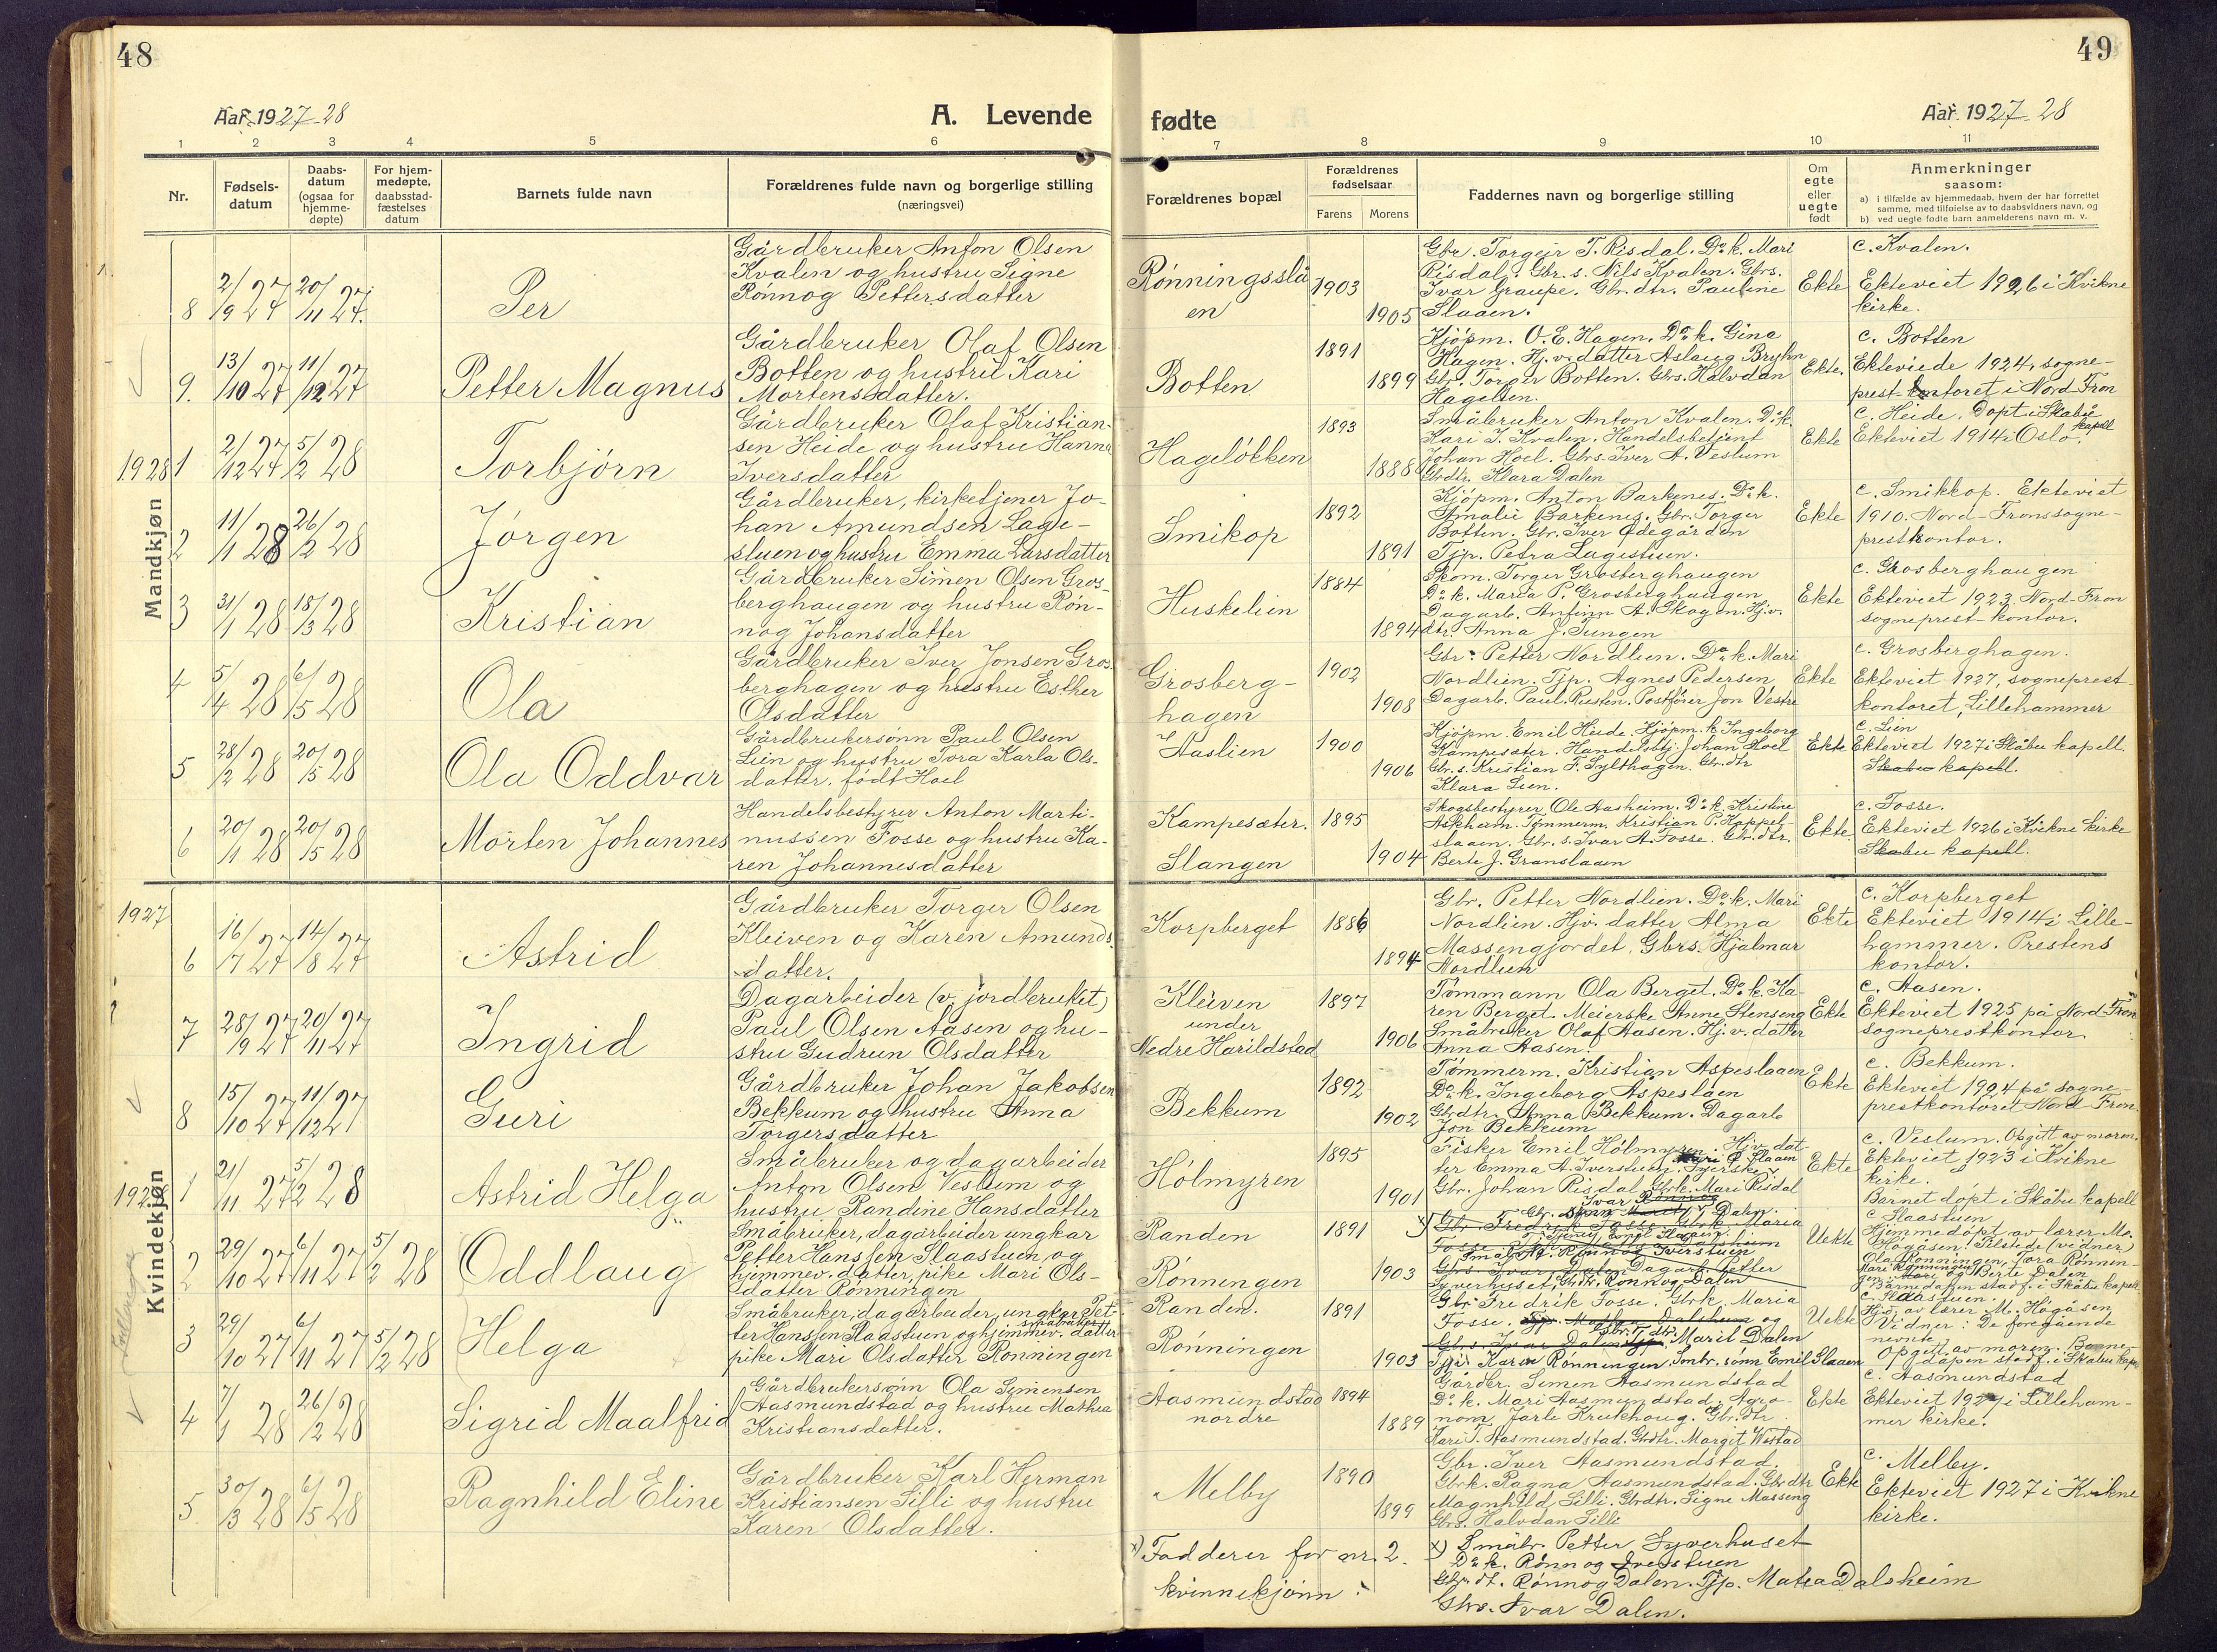 48
49
Aar 1927-28
A. Levende
fødte
Aar 1927-28
1 2 3 4 5 6 7 8 9 10 11
Nr.
Fødsels-
datum
Daabs-
datum
(ogsaa for
hjemme-
døpte)
For hjem-
medøpte,
daabsstad-
fæstelses
datum
Barnets fulde navn
Forældrenes fulde navn og borgerlige stilling
(næringsvei)
Forældrenes bopæl
Forældrenes
fødselsaar
Farens
Morens
Faddernes navn og borgerlige stilling
Om
egte
eller
uegte
født
Anmerkninger
saasom:
a) i tilfælde av hjemmedaab, hvem der har forrettet
samme, med tilføielse av to daabsvidners navn, og
b) ved uegte fødte barn anmelderens navn m. v.
Mandkjøn
8
2/9 27
20/11 27.
Per
Gårdbruker Anton Olsen
Kvalen og hustru Signe
Rönnog Pettersdatter
Rönningsslå
en
1903
1905
Gbr. Torgeir T. Risdal. Do k. Mari
Risdal. Gbr. s. Nils Kvalen. Gbrs.
Ivar Graupe. Gbr.dtr. Pauline
Slaaen.
Ekte
c. Kvalen.
Ekteviet 1926 i Kvikne
kirke.
9.
13/10 27
11/12 27
Petter Magnus
Gårdbruker Olaf Olsen
Botten og hustru Kari
Mortensdatter.
Botten
1891
1899
Kjöpm. O. E. Hagen. Do k. Gina
Hagen. Hj.v.datter Aslaug Bryhn
Gbr. Torger Botten. Gbrs. Halvdan
Hagelien.
Ekte.
c. Botten
Ekteviede 1924, sogne-
prest-kontoret i Nord-Fron
1928 1
2/12 27
5/2 28
Torbjörn
Gårdbruker Olaf Kristian-
sen Heide og hustru Hanna
Iversdatter
Hagelökken
1893
1888
Småbruker Anton Kvalen. Do k.
Kari I. Kvalen. Handelsbetjent
Johan Hoel. Gbrs Iver A. Veslum
Gbrdtr. Klara Dalen
Ekte
c. Heide. Döpt i Skåbu
kapell
Ekteviet 1914 i Oslo.
2
11/1 28
26/2 28
Jörgen
Gårdbruker, kirketjener Jo-
han Amundsen Lage-
stuen og hustru Emma Larsdatter
Smikop
1892
1891
Kjöpm. Anton Barkenes. Do k.
Amalie Barkenes. Gbr. Torger
Botten. Gbr. Iver Ödegården
Tjp. Petra Lagestuen.
Ekte
c. Smikkop. Ekteviet
1910. Nord-Frons sogne-
prestkontor.
3
31/1 28
18/3 28
Kristian
Gårdbruker Simen Olsen Gros-
berghaugen og hustru Rön-
nog Johansdatter
Huskelien
1884
1894
Skom. Torger Grosberghaugen
Do k. Maria P. Grosberghaugen
Dagarb. Anfinn A. Skogen. Hj.v.
dtr. Anna J. Tungen
Ekte
c. Grosberghaugen
Ekteviet 1923. Nord-Fron
sogneprest-kontor.
4
5/4 28
6/5 28
Ola
Gårdbruker Iver Jonsen Gros-
berghagen og hustru Esther
Olsdatter
Grosberg-
hagen
1902
1908
Gbr. Petter Nordlien. Do k. Mari
Nordlien. Tjp. Agnes Pedersen
Dagarb. Paul. Rusten. Postförer Jon Vestre
Ekte
c. Grosberghagen.
Ekteviet 1927, sogneprest-
kontoret, Lillehammer
5
28/2 28
20/5 28
Ola Oddvar
Gårdbrukersönn Paul Olsen
Lien og hustru Tora Karla Ols-
datter. födt Hoel
Haslien
1900
1906
Kjöpm. Emil Heide. Kjöpm. k. Ingeborg
Kampesæter. Handelsbtj. Johan Hoel
Gbr. s. Kristian F. Sylthagen. Gbr. dtr
Klara Lien.
Ekte
c. Lien
Ekteviet 1927 i Skåbu kapell.
Skabu kapell.
6
20/1 28
20/5 28
Morten Johannes
Handelsbestyrer Anton Marti-
nussen Fosse og hustru Ka-
ren Johannesdatter
Kampesæter.
Slangen
1895
1904
Skogsbestyrer Ole Aasheim. Do k. Kristine
Askheim. Tömmerm. Kristian P. Kappel-
slaaen. Gbr. s. Ivar A. Fosse. Gbr. dtr.
Berte J. Granslaaen
Ekte
c. Fosse.
Ekteviet 1926 i Kvikne kirke
Skabu kapell.
Kvindekjøn
1927
6
16/7 27
14/8 27
Astrid
Gårdbruker Torger Olsen
Kleiven og Karen Amunds-
datter.
Korpberget
1886
1894
Gbr. Petter Nordlien. Do k. Mari
Nordlien. Hjv. datter Alma
Massengjordet. Gbrs. Hjalmar
Nordlien
Ekte
c. Korpberget
Ekteviet 1914 i Lille-
hammer. Prestens
kontor.
7
28/9 27
20/11 27
Ingrid
Dagarbeider (v. jordbruket)
Paul Olsen Aasen og hu-
stru Gudrun Olsdatter
Kleiven
under
Nedre Harildstad
1897
1906
Tömmann Ola Berget. Do k. Ka-
ren Berget. Meierske Anne Stenseng
Småbruker Olaf Aasen. Hj. v. datter
Anna Aasen.
Ekte
c. Aasen.
Ekteviet 1925 på Nord-Fron
sogneprestkontor
8
15/10 27
11/12 27
Guri
Gårdbruker Johan Jakobsen
Bekkum og hustru Anna
Torgersdatter
Bekkum
1892
1902
Tömmerm. Kristian Aspeslaaen
Do k. Ingeborg Aspeslaen
Gbrdtr. Anna Bekkum. Dagarb
Jon Bekkum
Ekte
c. Bekkum.
Ekteviet 1924 på sogne-
prestkontoret Nord-Fron.
1928 1
21/11 27
5/2 28
Astrid Helga
Småbruker og dagarbeider
Anton Olsen Veslum og
hustru Randine Hansdatter
Hólmyren
1895
1901
Fisker Emil Hólmyren. Hjv. dat-
ter Emma A. Iverstuen.
Gbr. Johan Risdal. Gbrk. Mari Risdal
Ekte
c. Veslum. Opgitt av moren.
Ekteviet 1923 i Kvikne
kirke.
Barnet döpt i Skåbu kapell
2
29/10 27
6/11 27
5/2 28
Oddlaug
Småbruker, dagarbeider ungkar
Petter Hanssen Slaastuen og
hjemmev. datter, pike Mari Ols-
datter Rönningen
Randen
Rönningen
1891
1903
x) Gbr. Fredrik Fosse. Gbrk. Maria
Fosse
Gbrs. Ivar Dalen. Dagarb. Petter
Syverhuset, Gb.dtr. Rönnog Dalen
Uekte
c Slaastuen
Hjemmedöpt av lærer M.
Högåsen. Tilstede (vidner)
Ola Rönningen, Tora Rönnin-
gen og Berte Dalen
Barnedåpen stadf. i Skåbu kapell
3
29/10 27
6/11 27
5/2 28
Helga
Småbruker, dagarbeider, ungkar Pet-
ter Hanssen Slaastuen og hjemmev. datter
småbruker
pike Mari Olsdatter Rönningen
Randen.
Rönningen
1891
1903
Gbr. Fredrik Fosse. Gbrk. Maria
Fosse. og
Marit Dalen
Tjp. Karen Rönningen. Smbr. sönn Emil Slaaen
Uekte
c. Slaastuen.
Hjd. av lærer M. Högåsen
Vidner: De foregående
nevnte.
Opgitt av moren. Barne-
dåpen stadf. i Skåbu kap.
4
7/1 28
26/2 28
Sigrid Maalfrid
Gårdbrukersönn Ola Simensen
Aasmundstad og hustru Mathea
Kristiansdatter.
Aasmundstad
nordre
1894
1889
Gårdbr. Simen Aasmundstad
Do k. Mari Aasmundstad. Agro-
nom Jarle Krukhaug. Gbr. dtr
Kari S. Aasmundstad. Gbrdtr. Margit Wastad
Ekte
c. Aasmundstad
Ekteviet 1927 i Lilleham-
mer kirke.
5.
30/3 28
6/5 28
Ragnhild Eline
Gårdbruker Karl Herman
Kristiansen Lilli og hustru
Karen Olsdatter.
Melby
1890
1899
Gbr. Iver Aasmundstad.
Gbrk. Ragna Aasmundstad. Gbrdtr
Magnhild Lilli. Gbrdtr. Signe Masseng
Gbrs. Halvdan Lilli
Ekte
c. Melby.
Ekteviet 1927 i Kvikne
kirke.
x) Fadderer for nr. 2.
kvinnekjönn:
x) Småbr. Petter Syverhuset
Do k. Rönnog Iverstuen
Gbr. dt. Rönnog Dalen. Tjp. Matea Dalsheim
Gbrs. Ivar Dalen.